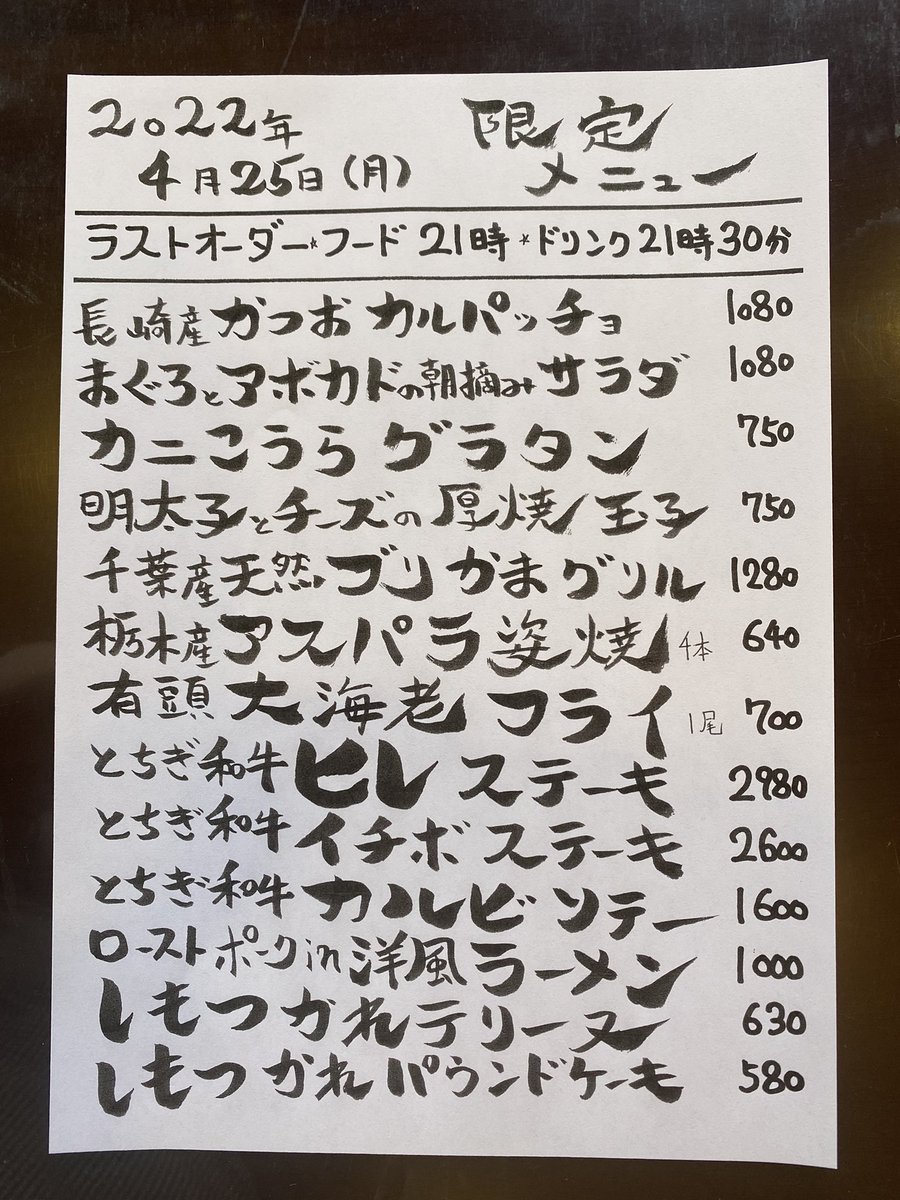 2022年
4月25日(月)
限定
メニュー
ラストオーダー*フード21時*ドリンク21時30分
長崎産かつおカルパッチョ 1080
まぐろとアボカドの朝摘みサラダ 1080
カニこうらグラタン 750
明太子とチーズの厚焼玉子 750
千葉産天然ブリかまグリル 1280
栃木産アスパラ姿焼4本 640
有頭大海老フライ1尾 700
とちぎ和牛ヒレステーキ 2980
とちぎ和牛イチボステーキ 2600
とちぎ和牛カルビソテー 1600
ローストポークin洋風ラーメン 1000
しもつかれテリーヌ 630
しもつかれパウンドケーキ 580